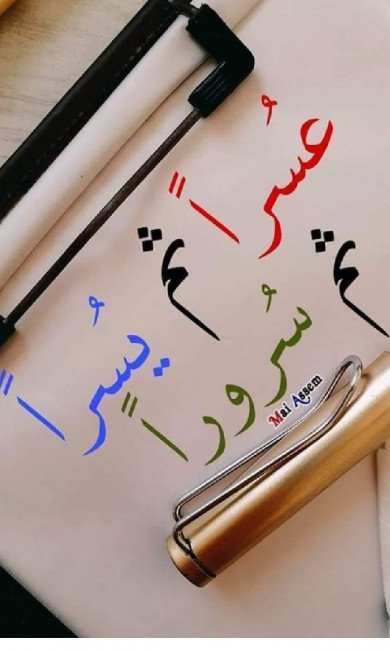 عُسراً ثم يُسراً
ثم سُروراً
Mai Assem